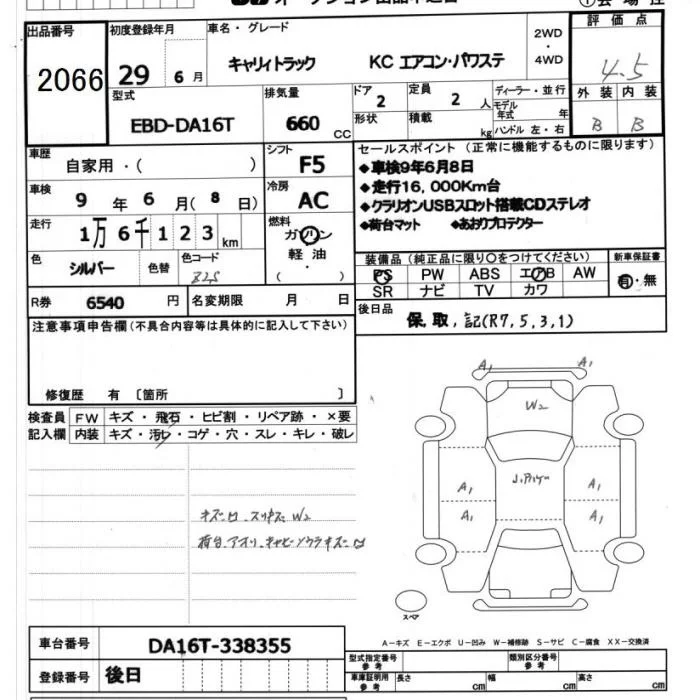 オークション出品申込書
出品番号 2066
初度登録年月 29 6 月
車名・グレード キャリィトラック KC エアコン・パワステ
2WD ・ 4WD
評価点 4.5
外装 内装
B B
型式 EBD-DA16T
排気量 660 CC
ドア 2
定員 2 人
形状
積載 kg
ディーラー・並行
モデル年式 年
ハンドル 左・右
車歴 自家用・( )
シフト F5
セールスポイント (正常に機能するものに限ります)
◆車検9年6月8日
◆走行16,000Km台
◆クラリオンUSBスロット搭載CDステレオ
◆荷台マット ◆あおりプロテクター
車検 9 年 6 月( 8 日)
冷房 AC
走行 1万 6千 1 2 3 km
燃料 ガソリン 軽油 ・ ( )
色 シルバー 色替
色コード
装備品 (純正品に限り○をつけてください)
新車保証書
PS PW ABS エアB AW
SR ナビ TV カワ
有・無
R券 6540 円
名変期限 月 日
後日品 保,取,記(R7,5,3,1)
注意事項申告欄(不具合内容等は具体的に記入して下さい)
修復歴 有 〔箇所 〕
検査員記入欄
FW キズ・飛石・ヒビ割・リペア跡・×要
内装 キズ・汚レ・コゲ・穴・スレ・キレ・破レ
キズ ロ、スリキズ W2
荷台、アオリ、キャビンウラキズ ロ
A1 A1
W2
A1 A1
A1 A1
スペア
A−キズ E−エクボ U−凹み W−補修跡 S−サビ C−腐食 XX−交換済
車台番号 DA16T-338355
登録番号 後日
型式指定番号 参考
類別区分番号 参考
車庫証明用 参考 長さ cm 幅 cm 高さ cm